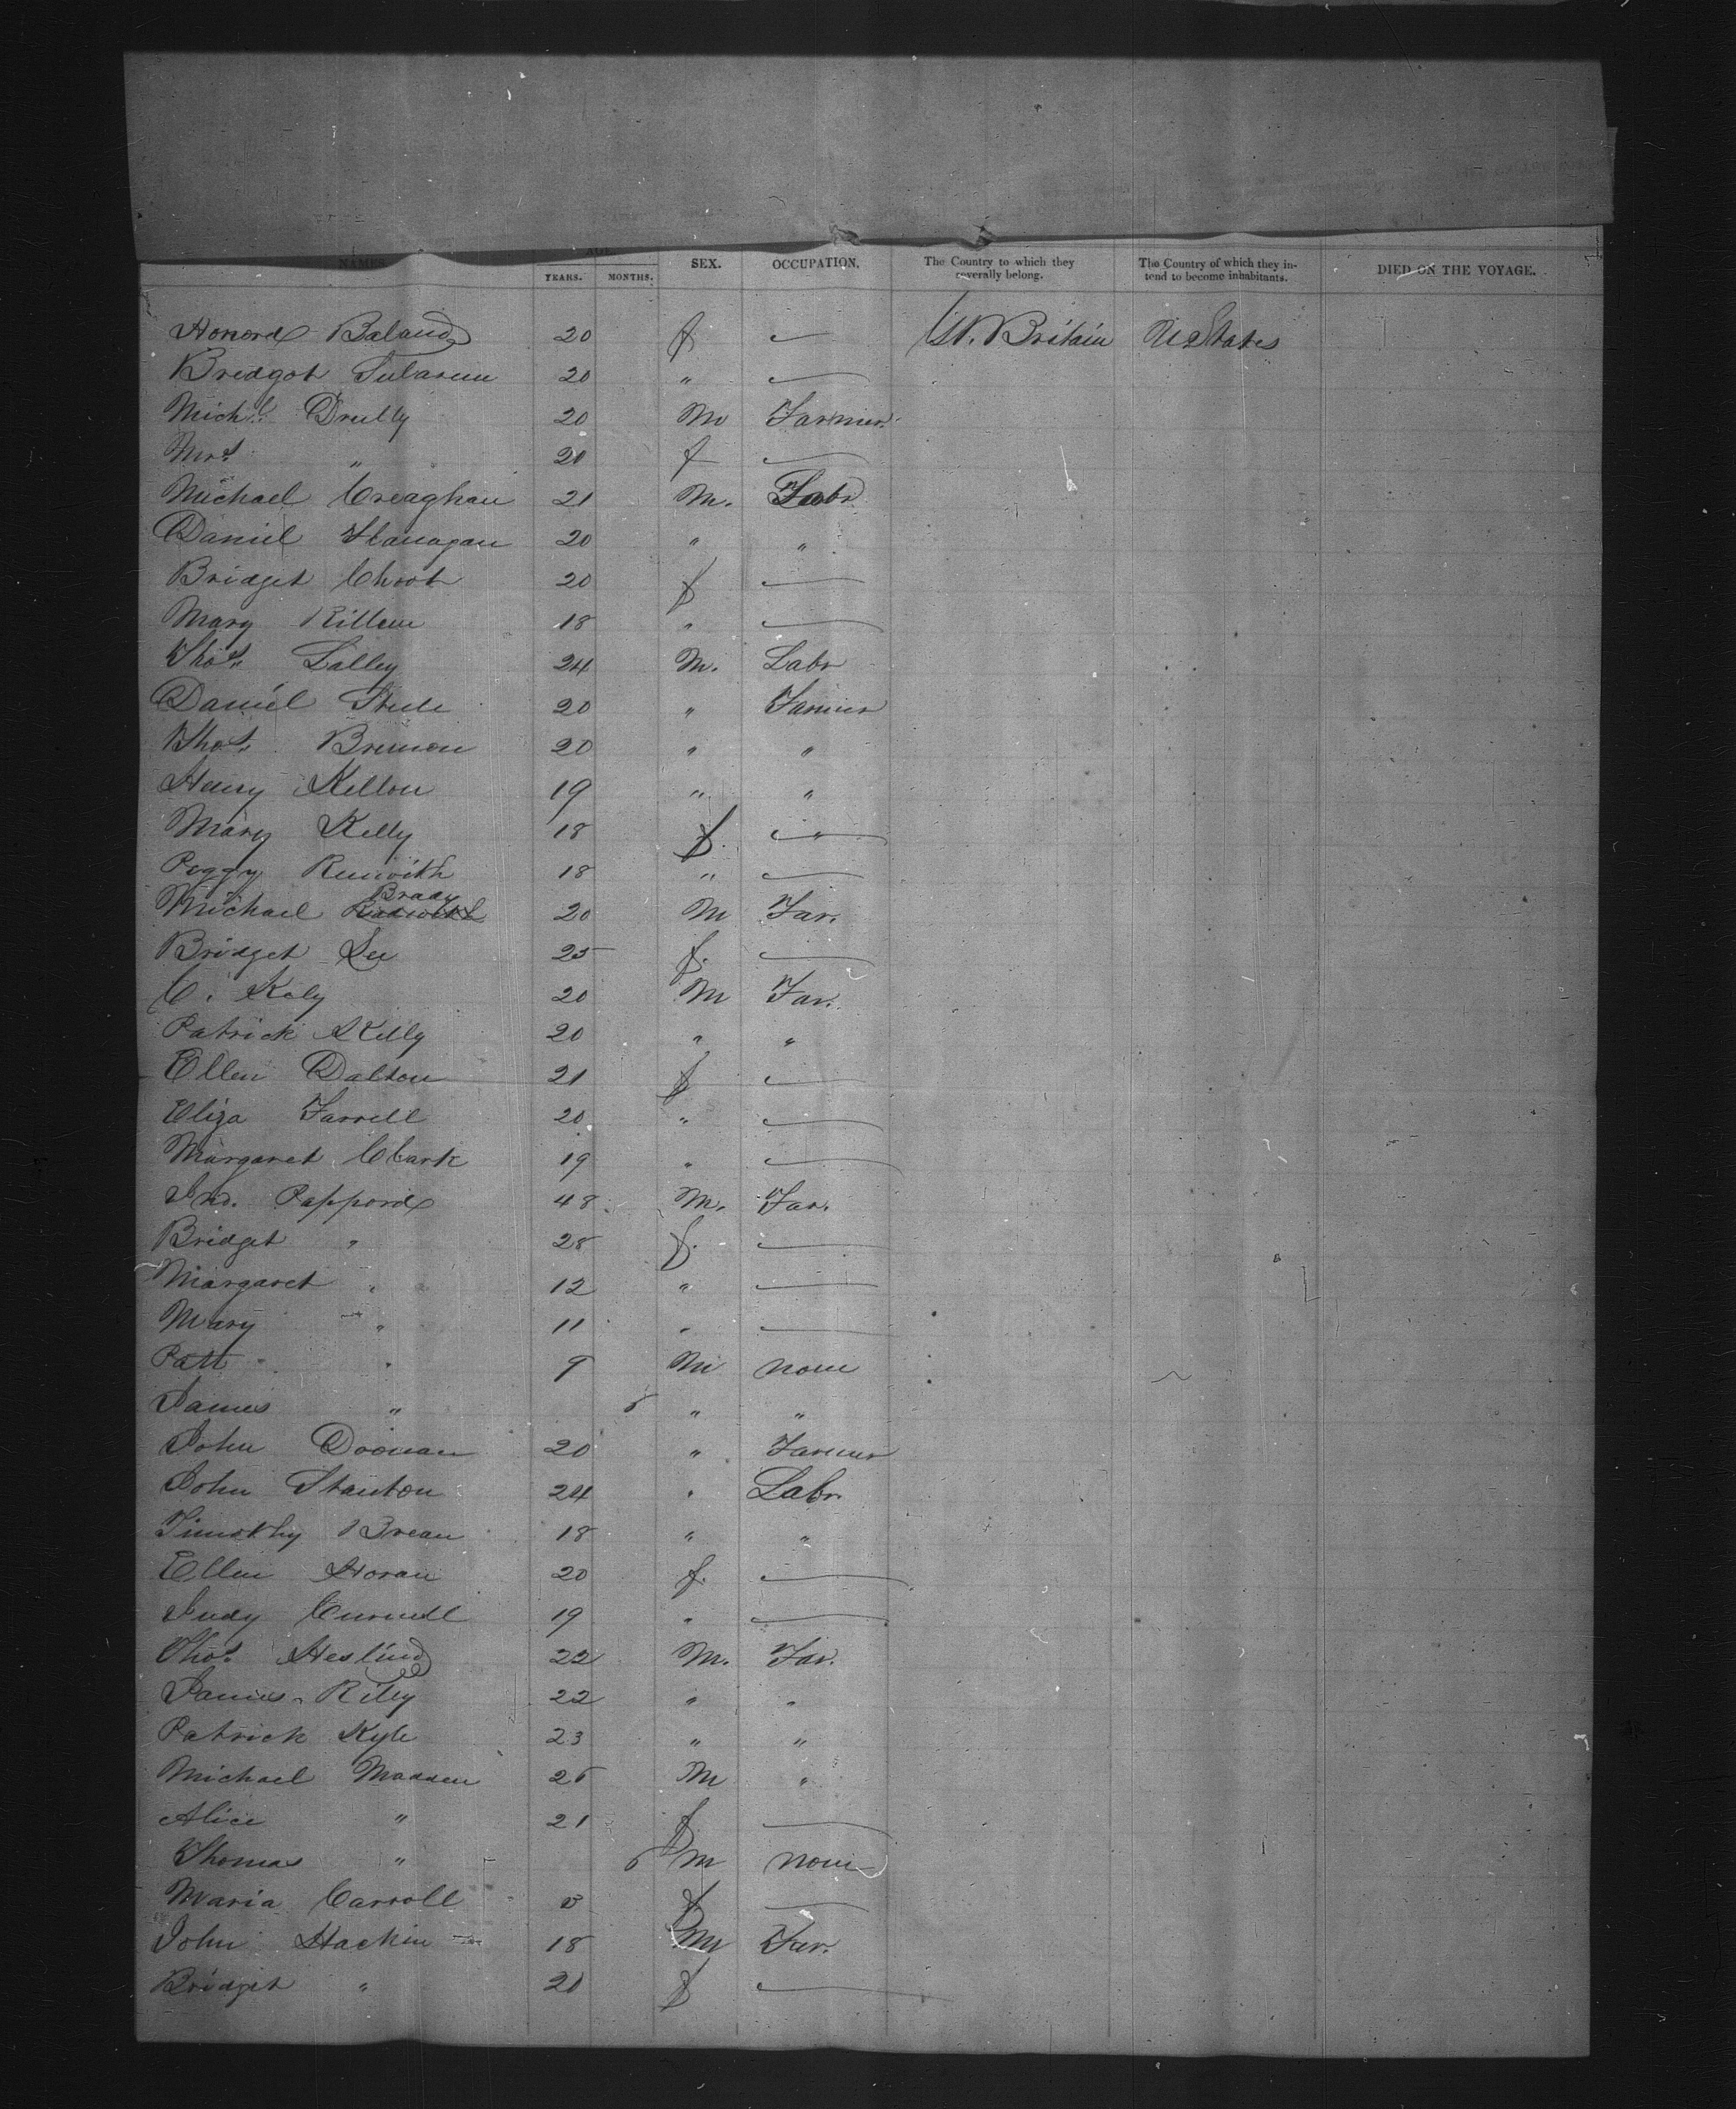 NAMES. AGE.
YEARS. MONTHS. SEX. OCCUPATION. The Country to which they severally belong. The Country of which they intend to become inhabitants. DIED ON THE VOYAGE.
Honord Boland 20 f — Gt. Britain U States
Bridget 20 " —
Michl. Drully 20 M Farmer
Mrs. " 20 f —
Michael Creaghan 21 M. Labr
Daniel Flanagan 20 " "
Bridget 20 f —
Mary Killen 18 " —
Thos. Lalley 24 M. Labr
Daniel Steele 20 " Farmer
Thos. Brennon 20 " "
Henry Kelton 19 " "
Mary Kelly 18 f. — "
Peggy 18 " —
Michael Brady 20 M Far.
Bridget Lee 25 f. —
C. Kaly 20 M Far.
Patrick Kelly 20 " "
Ellen Dalton 21 f —
Eliza Farrell 20 " —
Margaret Clark 19 " —
Jno. Pappord 48 M. Far.
Bridget " 28 f. —
Margaret " 12 " —
Mary " 11 " —
Patt " 9 M none
James " 6 " "
John Doonan 20 " Farmer
John Stanton 24 " Labr.
Timothy Brean 18 " "
Ellen Horan 20 f. —
Judy 19 " —
Thos. Heslind 22 M. Far.
James Riley 22 " "
Patrick Kyle 23 " "
Michael Madden 25 M "
Alice " 21 f —
Thomas " 6 M none
Maria Carroll f —
John Hackin 18 M Far.
Bridget " 20 f —